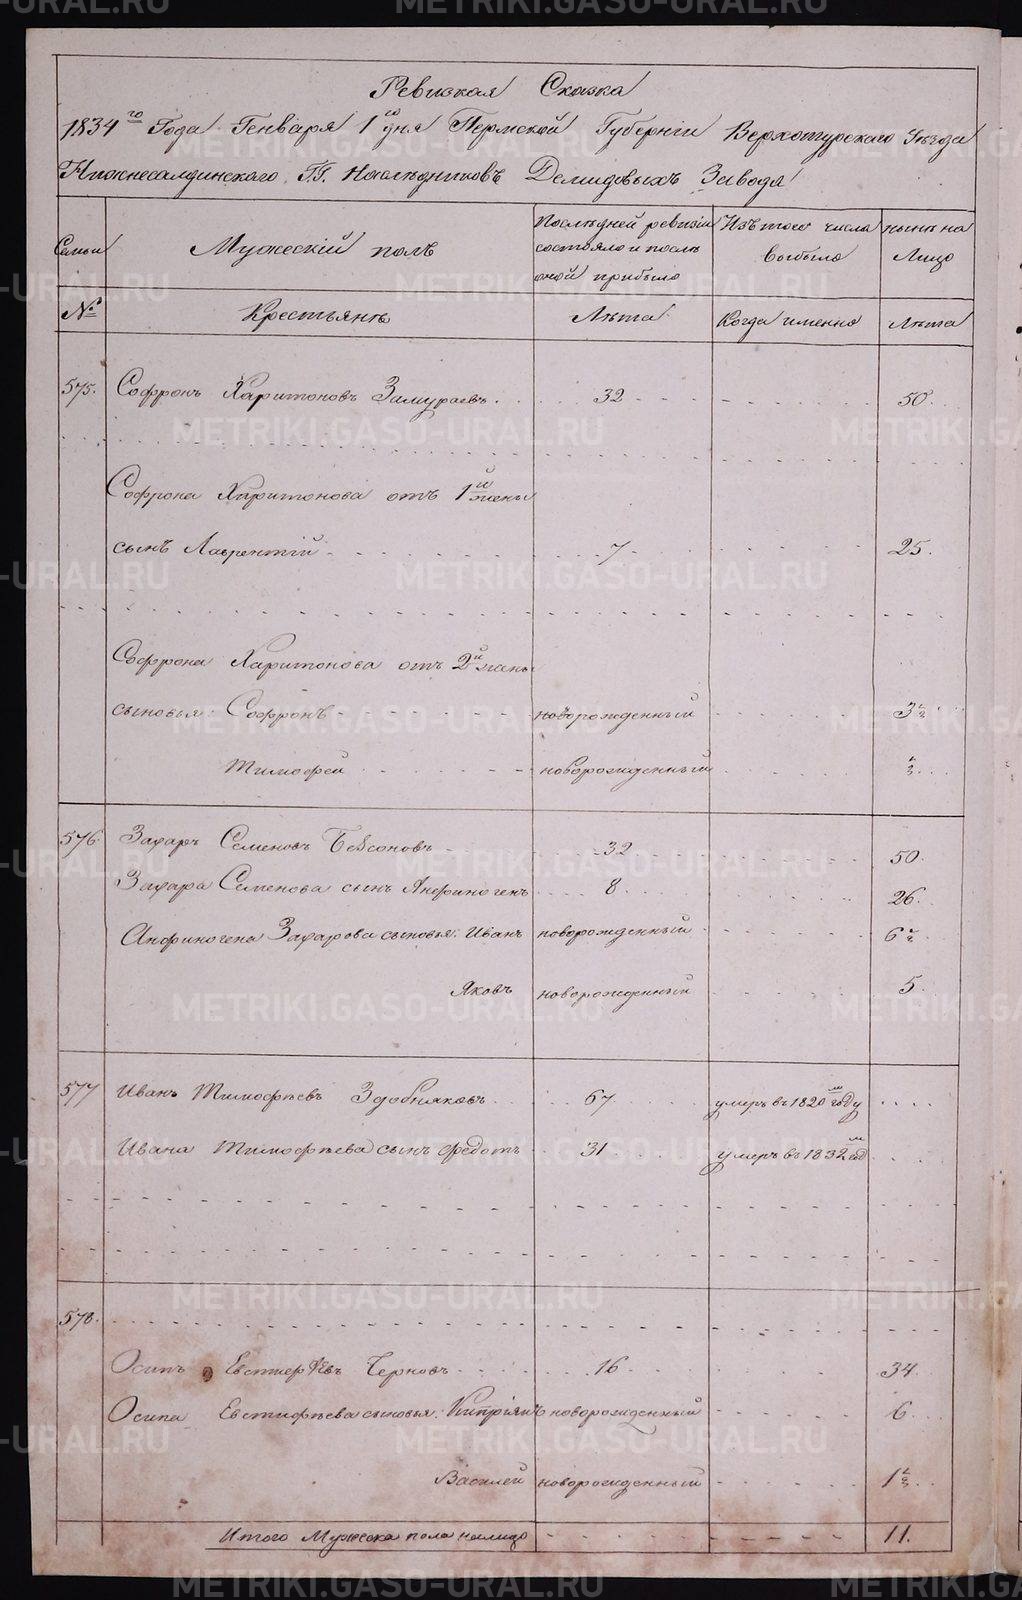 Ревизкая Сказка
1834го Года Генваря 1го дня Пермской Губернiи Верхотурскаго Уѣзда
Нижнесалдинскаго Г.Г. Наслѣдниковъ Демидовыхъ Завода
Семьи Мужескiй полъ Послѣдней ревизiи состояло и послѣ оной прибыло Изъ того числа выбыло нынѣ на Лицо
№ Крестьянъ Лѣта Когда именно Лѣта
575. Софронъ Харитоновъ Замураевъ 32 50.
Софрона Харитонова отъ 1й жены
сынъ Лаврентiй 7 25.
Софрона Харитонова отъ 2й жены
сыновья: Софронъ новорожденный 3½
Тимофей новорожденный ½
576. Захаръ Семеновъ 32 50.
Захара Семенова сынъ Анфиногенъ 8 26.
Анфиногена Захарова сыновья: Иванъ новорожденный 6½
Яковъ новорожденный 5.
577 Иванъ Тимофѣевъ Здобняковъ 67 умеръ въ 1820м году
Ивана Тимофѣева сынъ Федотъ 31 умеръ въ 1832м год
578.
Осипъ Евстифѣевъ Черновъ 16 34.
Осипа Евстифѣева сыновья: Кипрiянъ новорожденный 6.
Василей новорожденный 1½
Итого Мужеска пола налицо 11.
METRIKI.GASO-URAL.RU